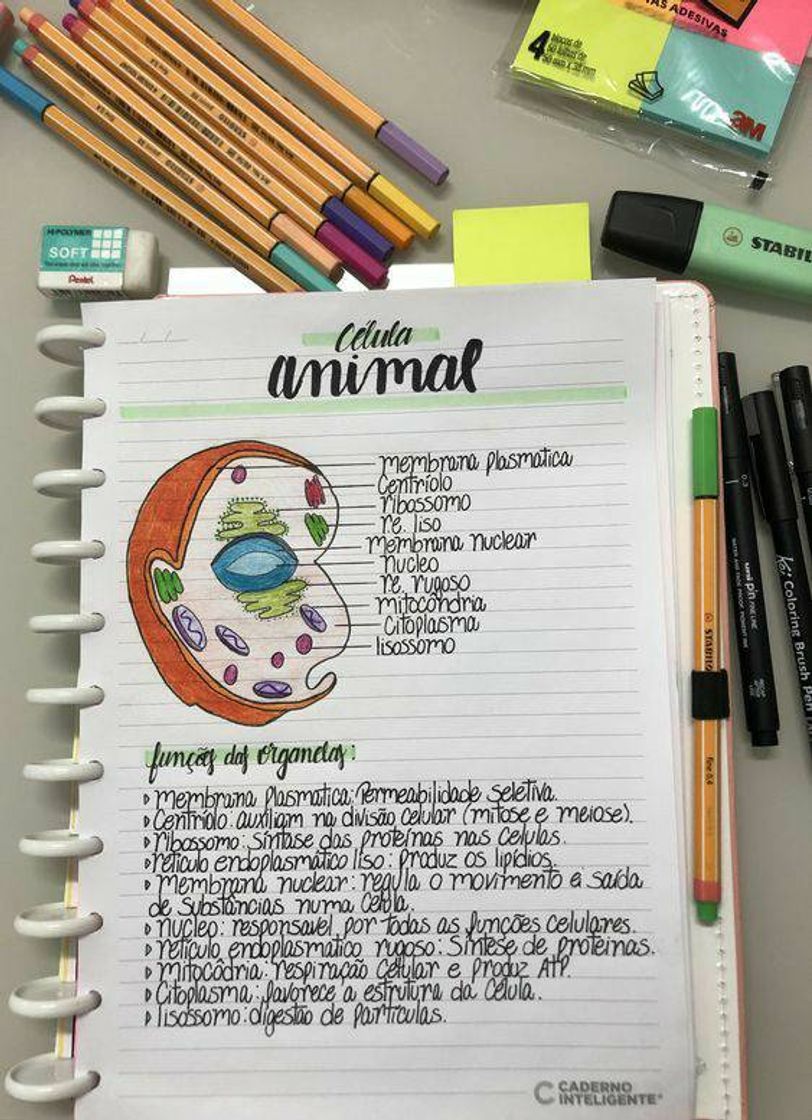 NOTAS ADESIVAS
4 blocos de
50 folhas de
38 mm x 50 mm
3M
HI-POLYMER
SOFT
Pentel
STABIL
Célula
animal
membrana plasmatica
Centríolo
ribossomo
re. liso
membrana nuclear
nucleo
re. rugoso
mitocôndria
Citoplasma
lisossomo
funções das organelas:
Membrana plasmatica: Permeabilidade seletiva.
Centríolo: auxiliam na divisão celular (mitose e meiose).
ribossomo: síntase das proteínas nas celulas.
retículo endoplasmático liso: produz os lipídios.
Membrana nuclear: regula o movimento e saída
de substâncias numa celula.
nucleo: responsavel por todas as funções celulares.
retículo endoplasmatico rugoso: síntese de proteinas.
mitocôdria: respiração celular e produz ATP.
Citoplasma: favorece a estrutura da célula.
lisossomo: digestão de partículas.
CADERNO
INTELIGENTE
0.3
uni pin FINE LINE
Koi Coloring Brush Pen
STABILO
fine 0,4